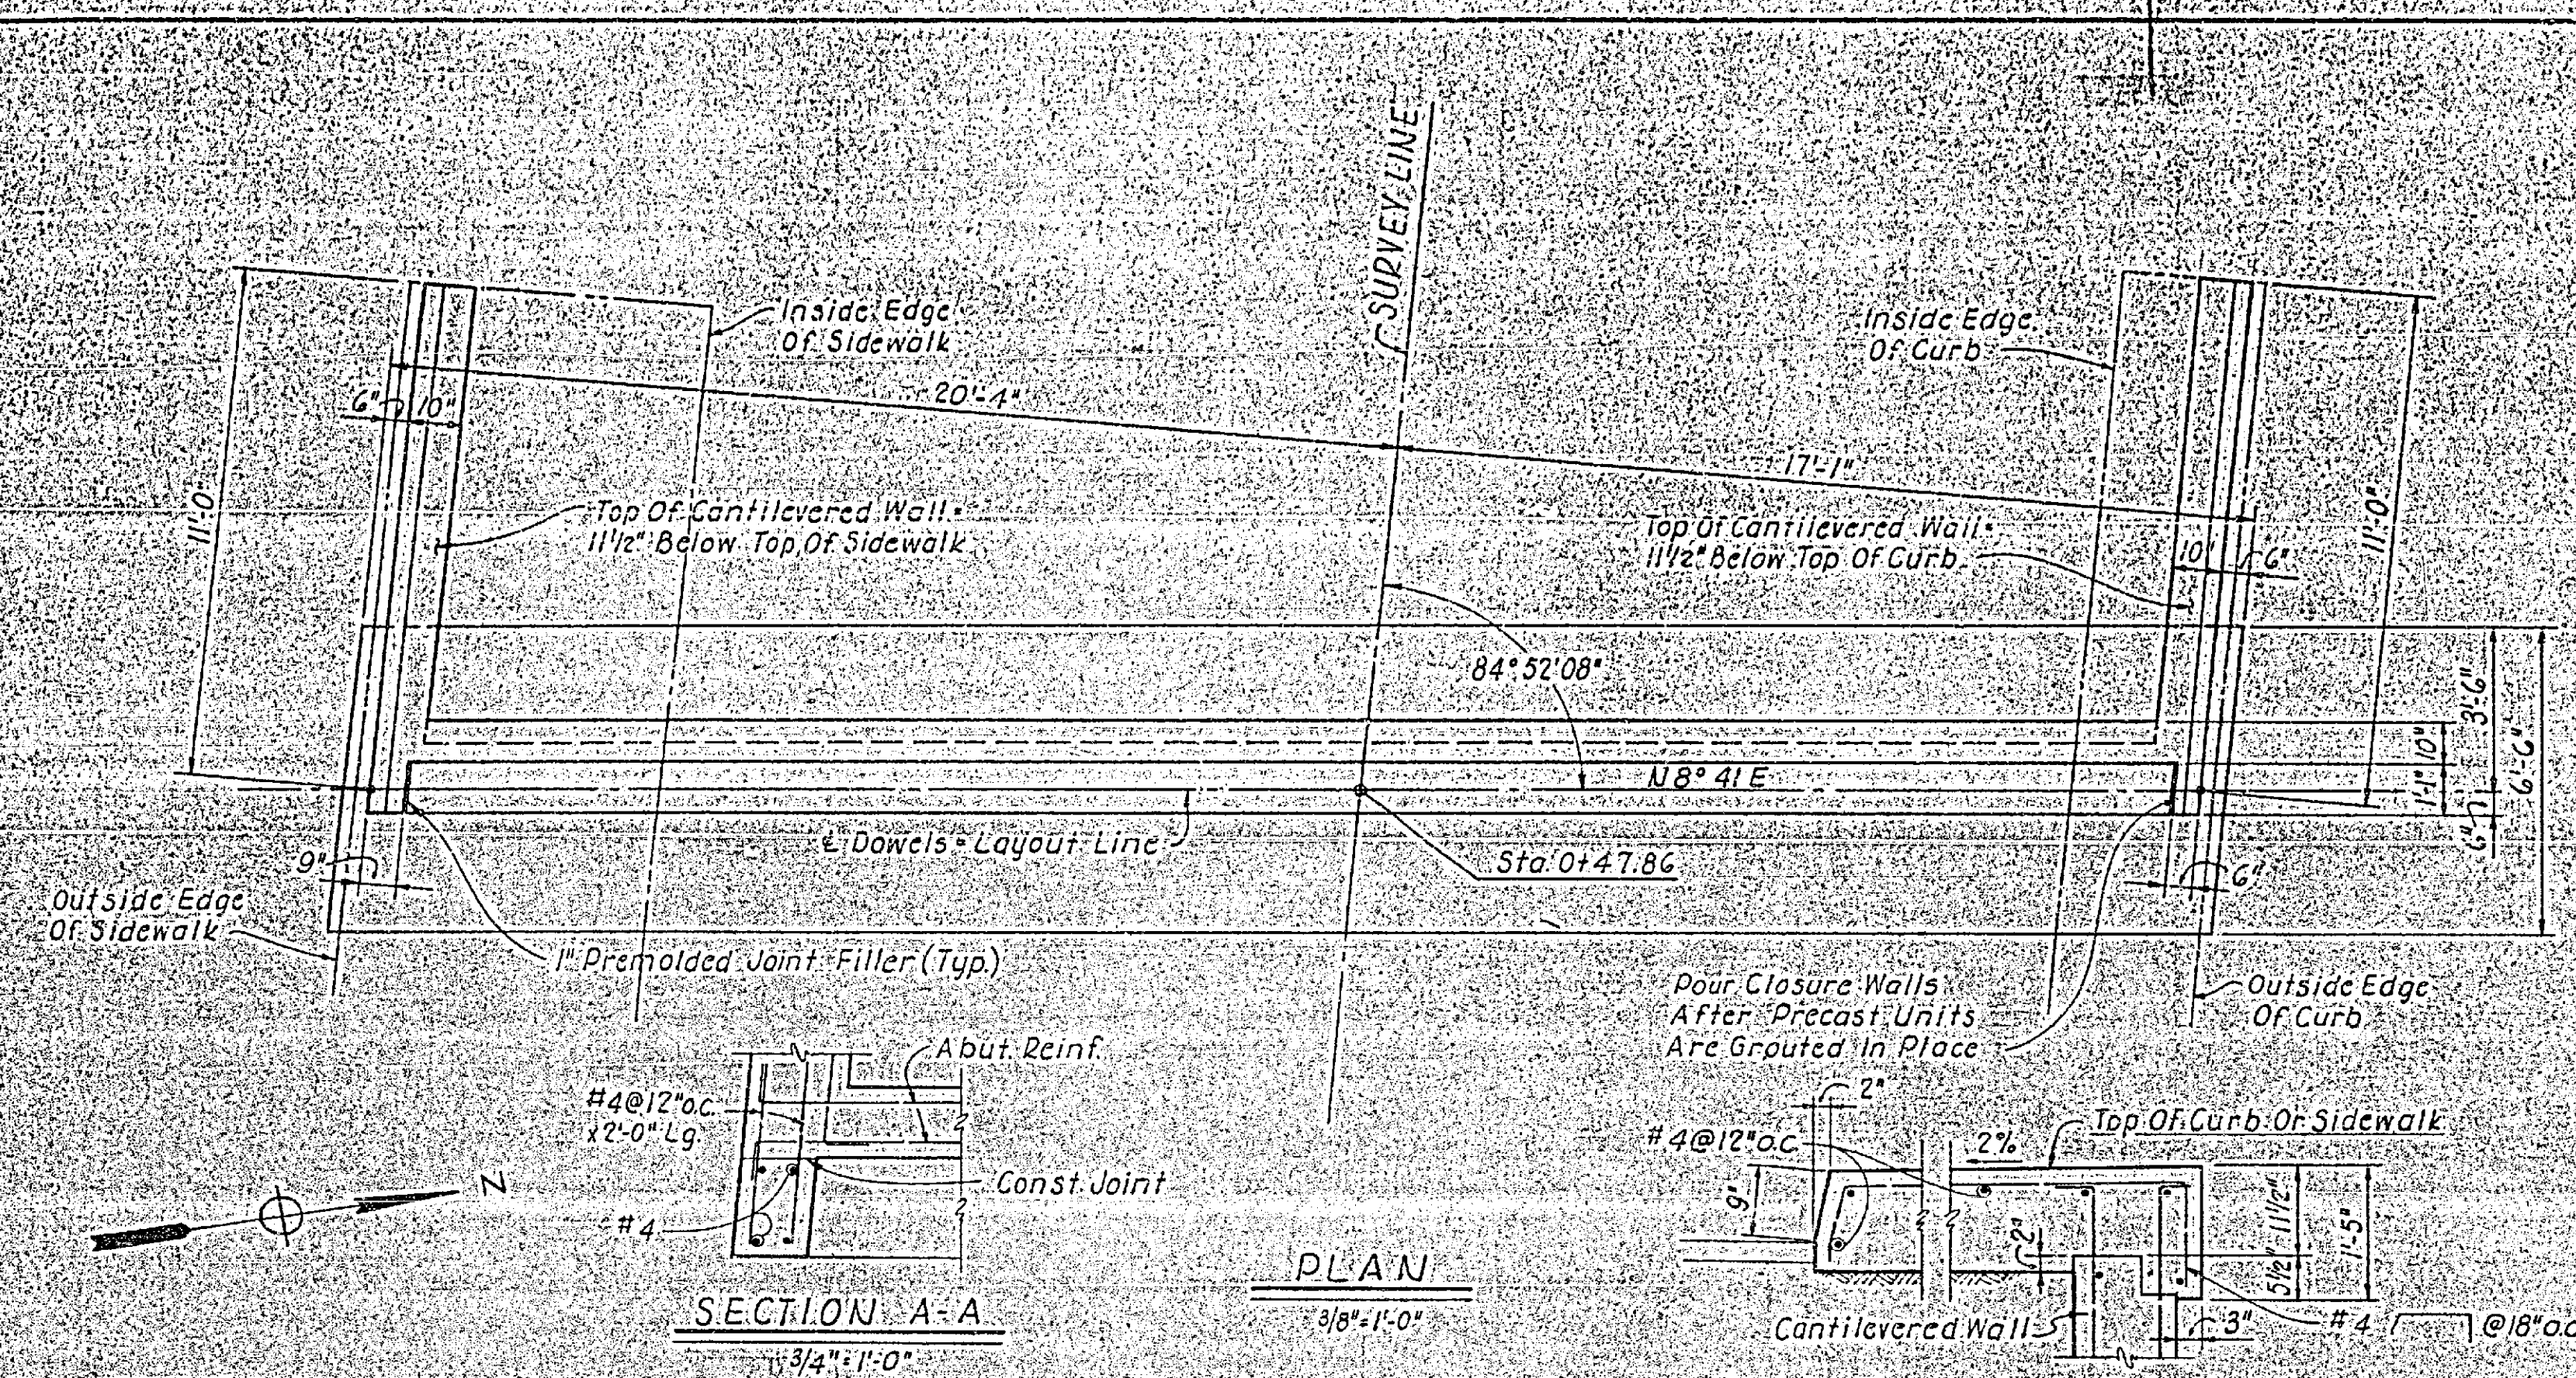 SURVEY LINE
Inside Edge
Of Sidewalk
Inside Edge
Of Curb
20'-4"
17'-1"
6"
10"
11'-0"
Top Of Cantilevered Wall =
11 1/2" Below Top Of Sidewalk
Top Of Cantilevered Wall =
11 1/2" Below Top Of Curb
10"
6"
11'-0"
84°52'08"
3'-6"
6'-6"
10"
1'-1"
6"
N 8° 41' E
℄ Dowels = Layout Line
Sta. 0+47.86
9"
6"
Outside Edge
Of Sidewalk
1" Premolded Joint Filler (Typ.)
Pour Closure Walls
After Precast Units
Are Grouted In Place
Outside Edge
Of Curb
Abut. Reinf.
#4@12"o.c.
x2'-0" Lg.
Const. Joint
#4
N
SECTION A-A
3/4"=1'-0"
PLAN
3/8"=1'-0"
2"
#4@12"o.c.
2%
Top Of Curb Or Sidewalk
9"
2"
11 1/2"
5 1/2"
1'-5"
Cantilevered Wall
3"
#4 @18"o.c.